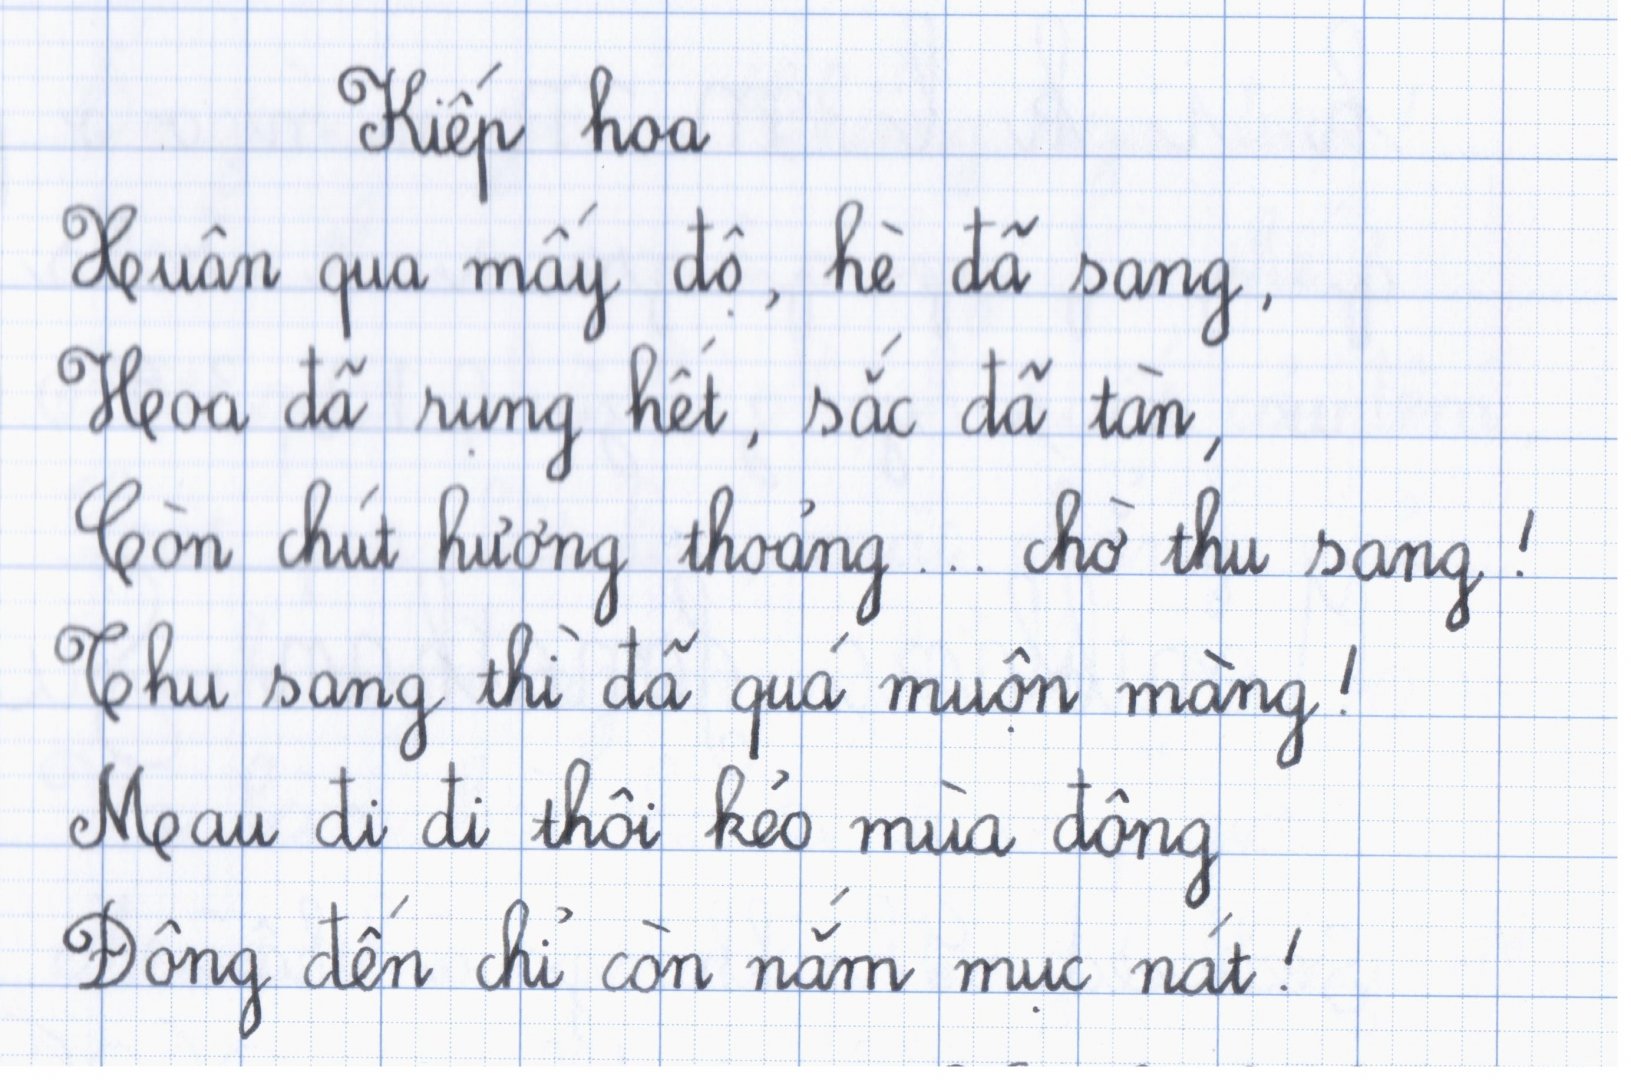 Kiếp hoa
Xuân qua mấy độ, hè đã sang,
Hoa đã rụng hết, sắc đã tàn,
Còn chút hương thoảng... chờ thu sang!
Thu sang thì đã quá muộn màng!
Mau đi đi thôi kẻo mùa đông
Đông đến chỉ còn nắm mục nát!